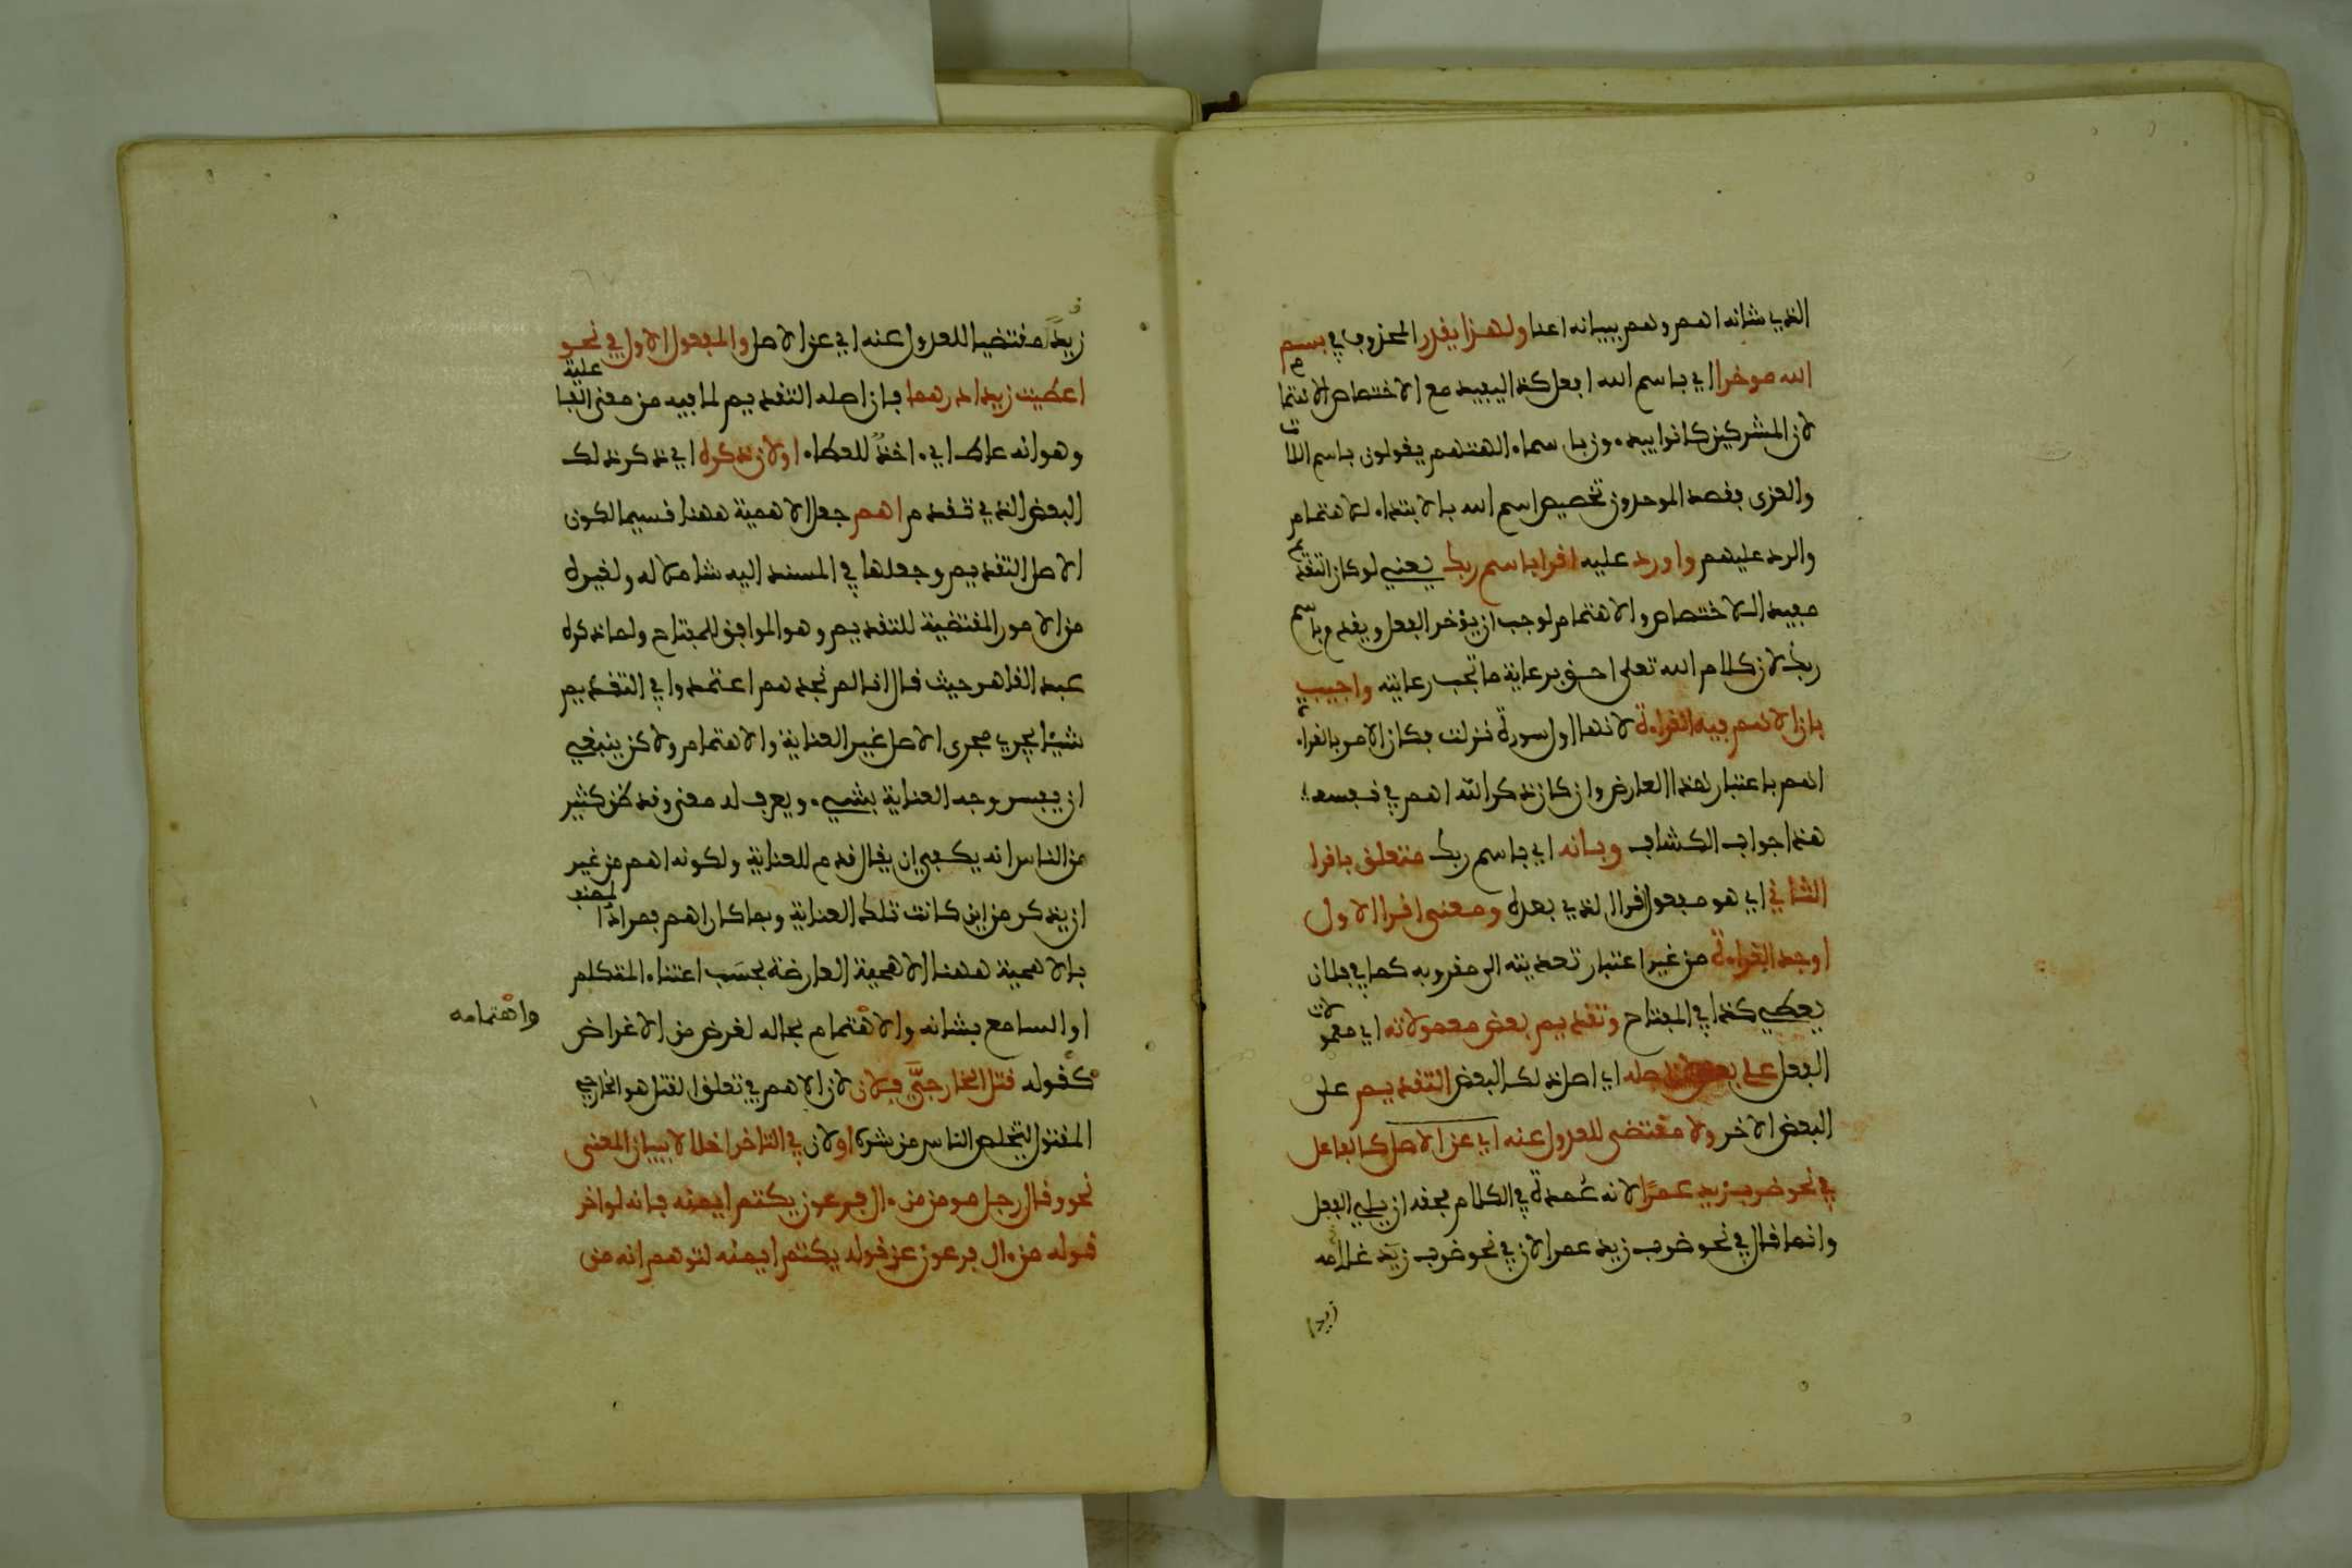 الذي شانه اهم وهم ببيانه اعنا ولهذا يقدر المحذوف في بسم
الله موخرا اي باسم الله افعل كذا ليفيد مع الاختصاص الاهتمام
لان المشركين كانوا يبدءون باسماء الهتهم يقولون باسم اللات
والعزى فقصد الموحدون تخصيص اسم الله بالابتداء للاهتمام
والرد عليهم واورد عليه اقرا باسم ربك يعني لو كان التقديم
مفيد الاختصاص والاهتمام لوجب ان يؤخر الفعل ويقدم باسم
ربك لان كلام الله تعلى احق برعاية ما تجب رعايته واجيب
بان الاهم فيه القراءة لانها اول سورة نزلت فكان الامر بالقراءة
اهم باعتبار هذا العارض وان كان ذكر الله اهم في نفسه
هذا جواب الكشاف وبانه اي باسم ربك متعلق باقرا
الثاني اي هو مفعول اقرا الذي بعده ومعنى اقرا الاول
اوجد القراءة من غير اعتبار تعديته الى مقروبه كما في فلان
يعطي كذا في المفتاح وتقديم بعض معمولاته اي معمولات
الفعل على بعض اصله اي اصل ذلك البعض التقديم على
البعض الاخر ولا مقتضى للعدول عنه اي عن الاصل كالفاعل
في نحو ضرب زيد عمرا لانه عمدة في الكلام فحقه ان يلي الفعل
وانما قال في نحو ضرب زيد عمرا لان في نحو ضرب زيد غلامه
زيدا
زيدا مقتضيا للعدول عنه اي عن الاصل والمفعول الاول في نحو
اعطيت زيدا درهما فان اصله التقديم لما فيه من معنى الفاعلية
وهو انه عاط اي ءاخذ للعطاء اولان ذكره اي ذكر ذلك
البعض الذي تقدم اهم جعل الاهمية ههنا قسيما لكون
الاصل التقديم وجعلها في المسند اليه شاملا له ولغيره
من الامور المقتضية للتقديم وهو الموافق للمفتاح ولما ذكره
عبد القاهر حيث قال انا لم نجدهم اعتمدوا في التقديم
شيئا يجري مجرى الاصل غير العناية والاهتمام ولاكن ينبغي
ان يفسر وجه العناية بشيء ويعرف له معنى وقد ظن كثير
من الناس انه يكفي ان يقال قدم للعناية ولكونه اهم من غير
ان يذكر من اين كانت تلك العناية وبما كان اهم فمراد المصنف
بالاهمية ههنا الاهمية العارضة بحسب اعتناء المتكلم
او السامع بشانه والاهتمام بحاله لغرض من الاغراض
واهتمامه
كقوله قتل الخارجي فلان لان الاهم في تعلق القتل هو الخارجي
المقتول لتخلص الناس من شره اولان في التاخر اخلالا ببيان المعنى
نحو وقال رجل مومن من ءال فرعون يكتم ايمنه فانه لو اخر
قوله من ءال فرعون عن قوله يكتم ايمنه لتوهم انه من